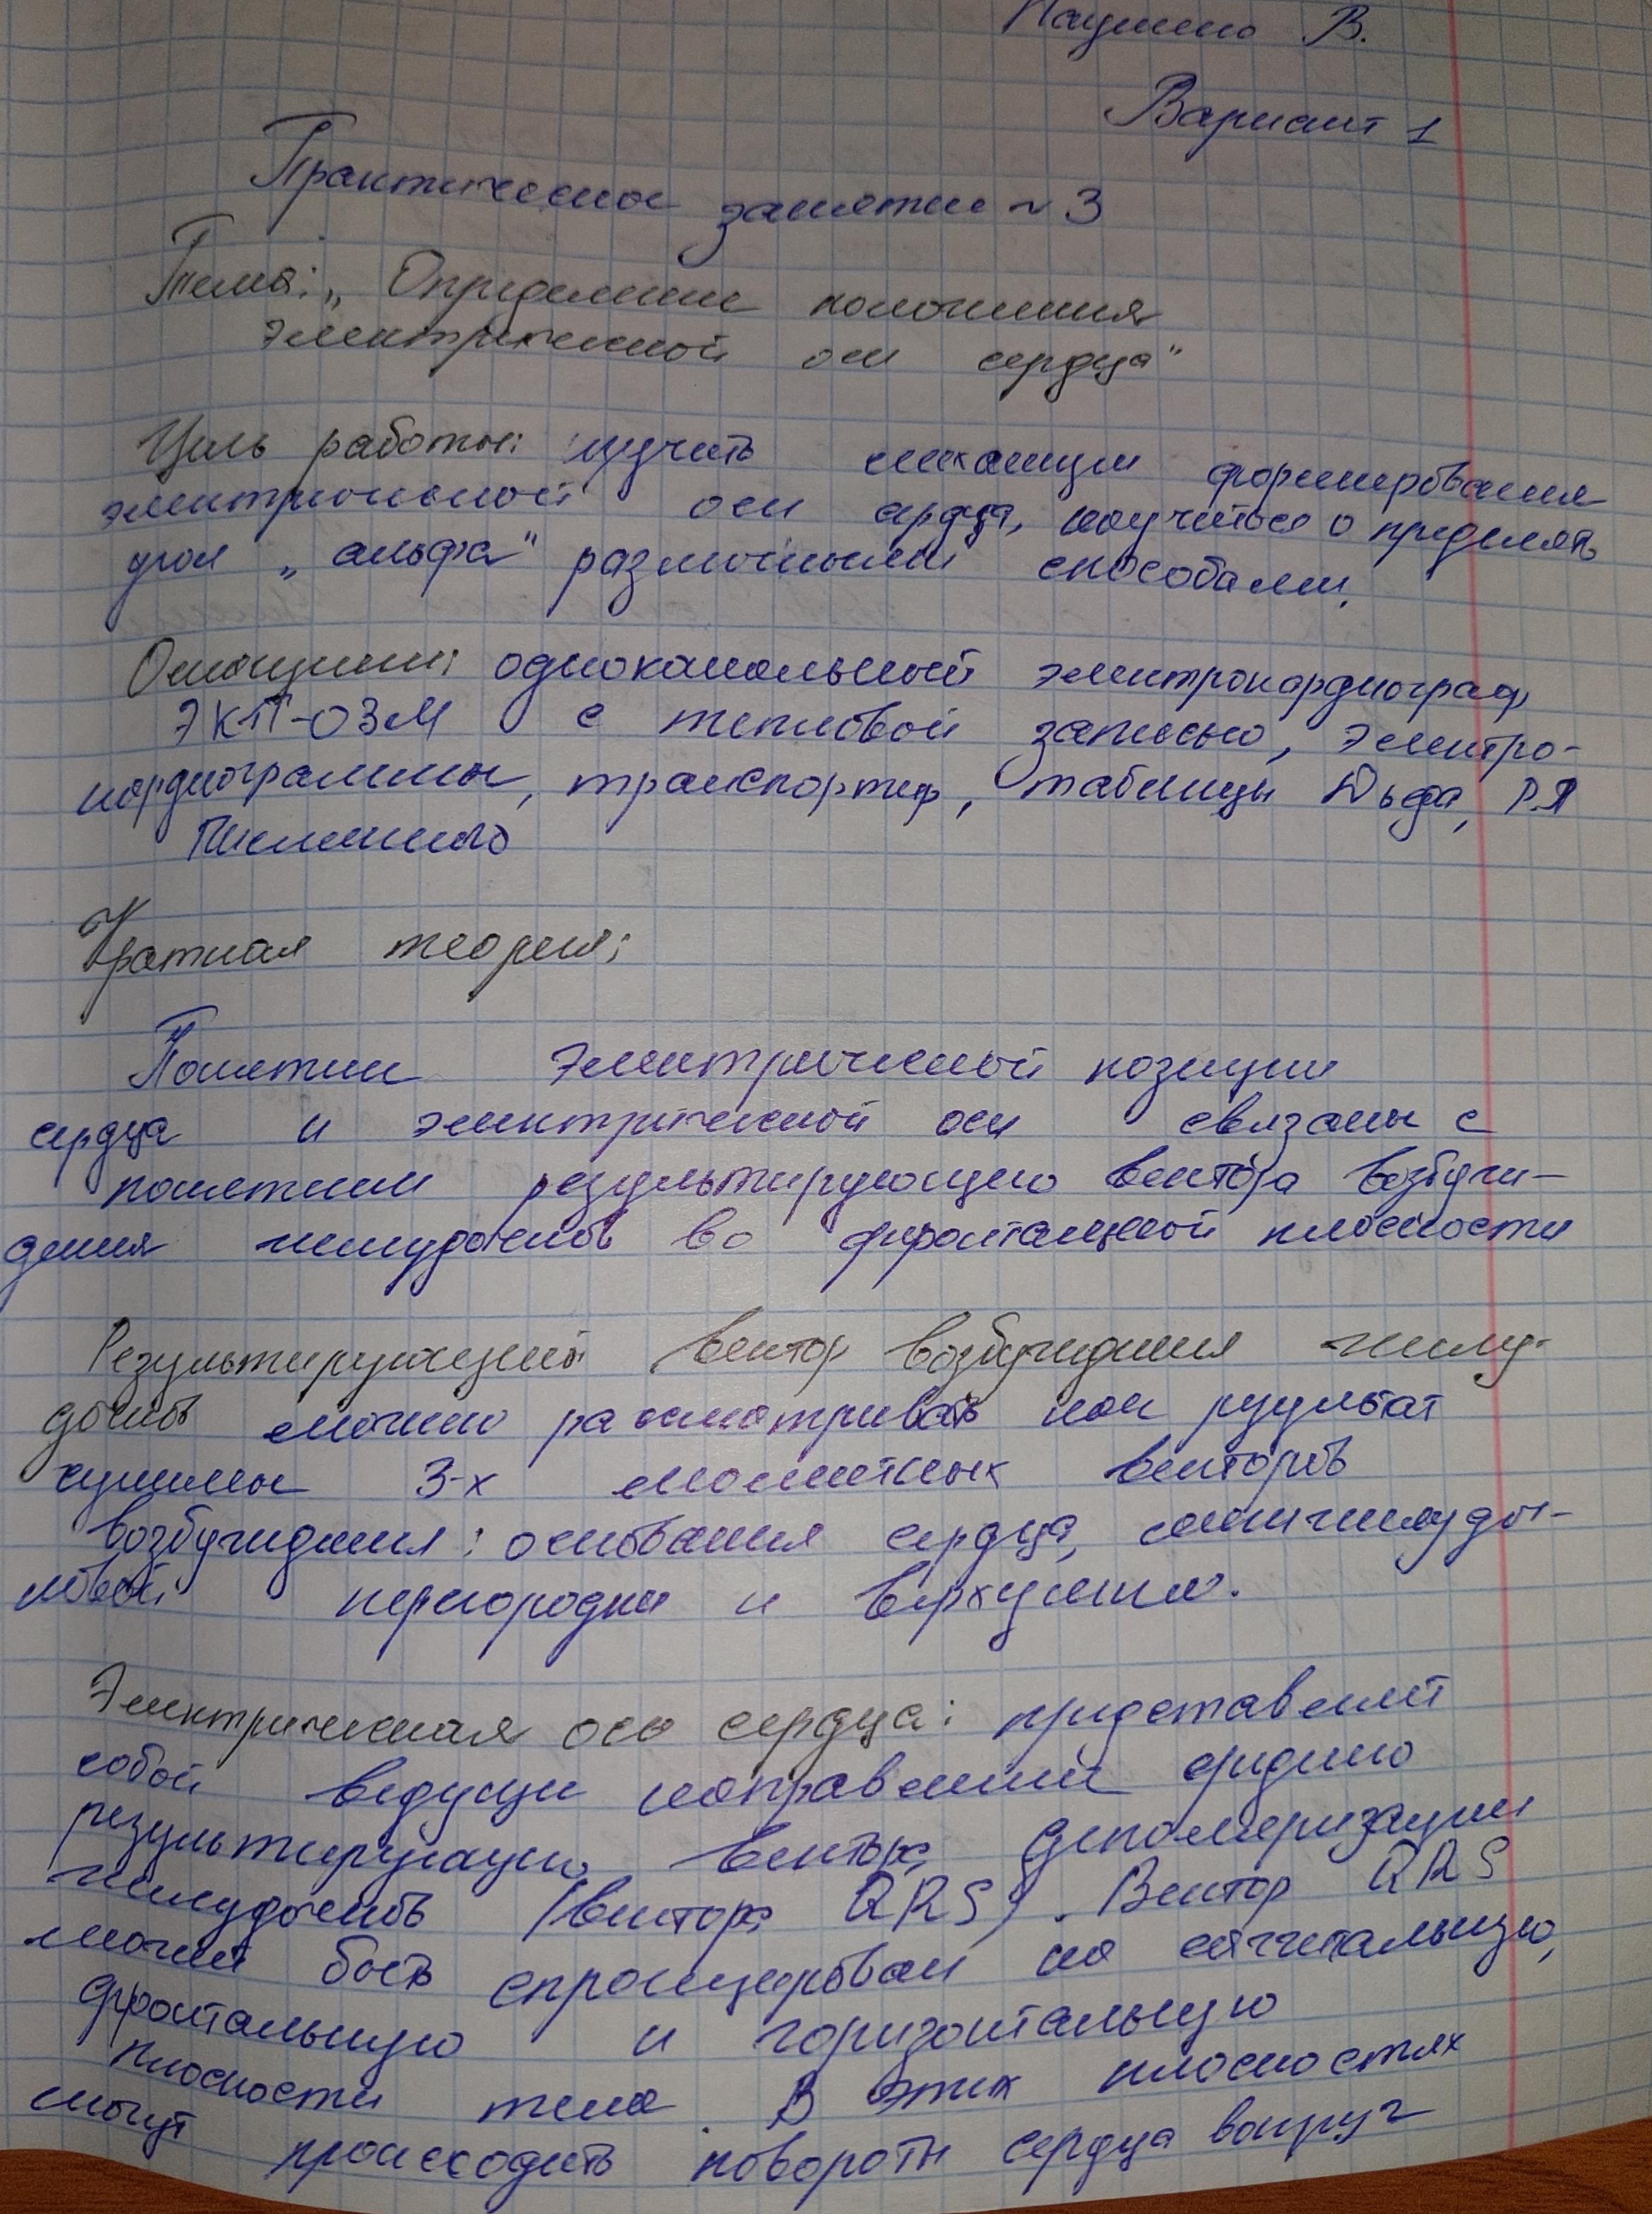 В.
Вариант 1
Практическое занятие №3
Тема: „Определение положения
электрической оси сердца"
Цель работы: изучить механизм формирования
электрической оси сердца, научиться определять
угол „альфа" различными способами.
Оснащение: одноканальный электрокардиограф
ЭКП-03М с тепловой записью, электро-
кардиограммы, транспортир, таблицы Дьеда, Р.Я
Письменного
Краткая теория:
Понятии электрической позиции
сердца и электрической оси связаны с
понятием результирующего вектора возбуж-
дения желудочков во фронтальной плоскости
Результирующий вектор возбуждения желу-
дочков можно рассматривать как результат
суммы 3-х моментных векторов
возбуждения: основания сердца, межжелудоч-
ковой перегородки и верхушки.
Электрическая ось сердца: представляет
собой ведущее направление среднего
результирующего вектора деполяризации
желудочков (вектора QRS). Вектор QRS
может быть спроецирован на сагитальную,
фронтальную и горизонтальную
плоскости тела. В этих плоскостях
могут происходить повороты сердца вокруг